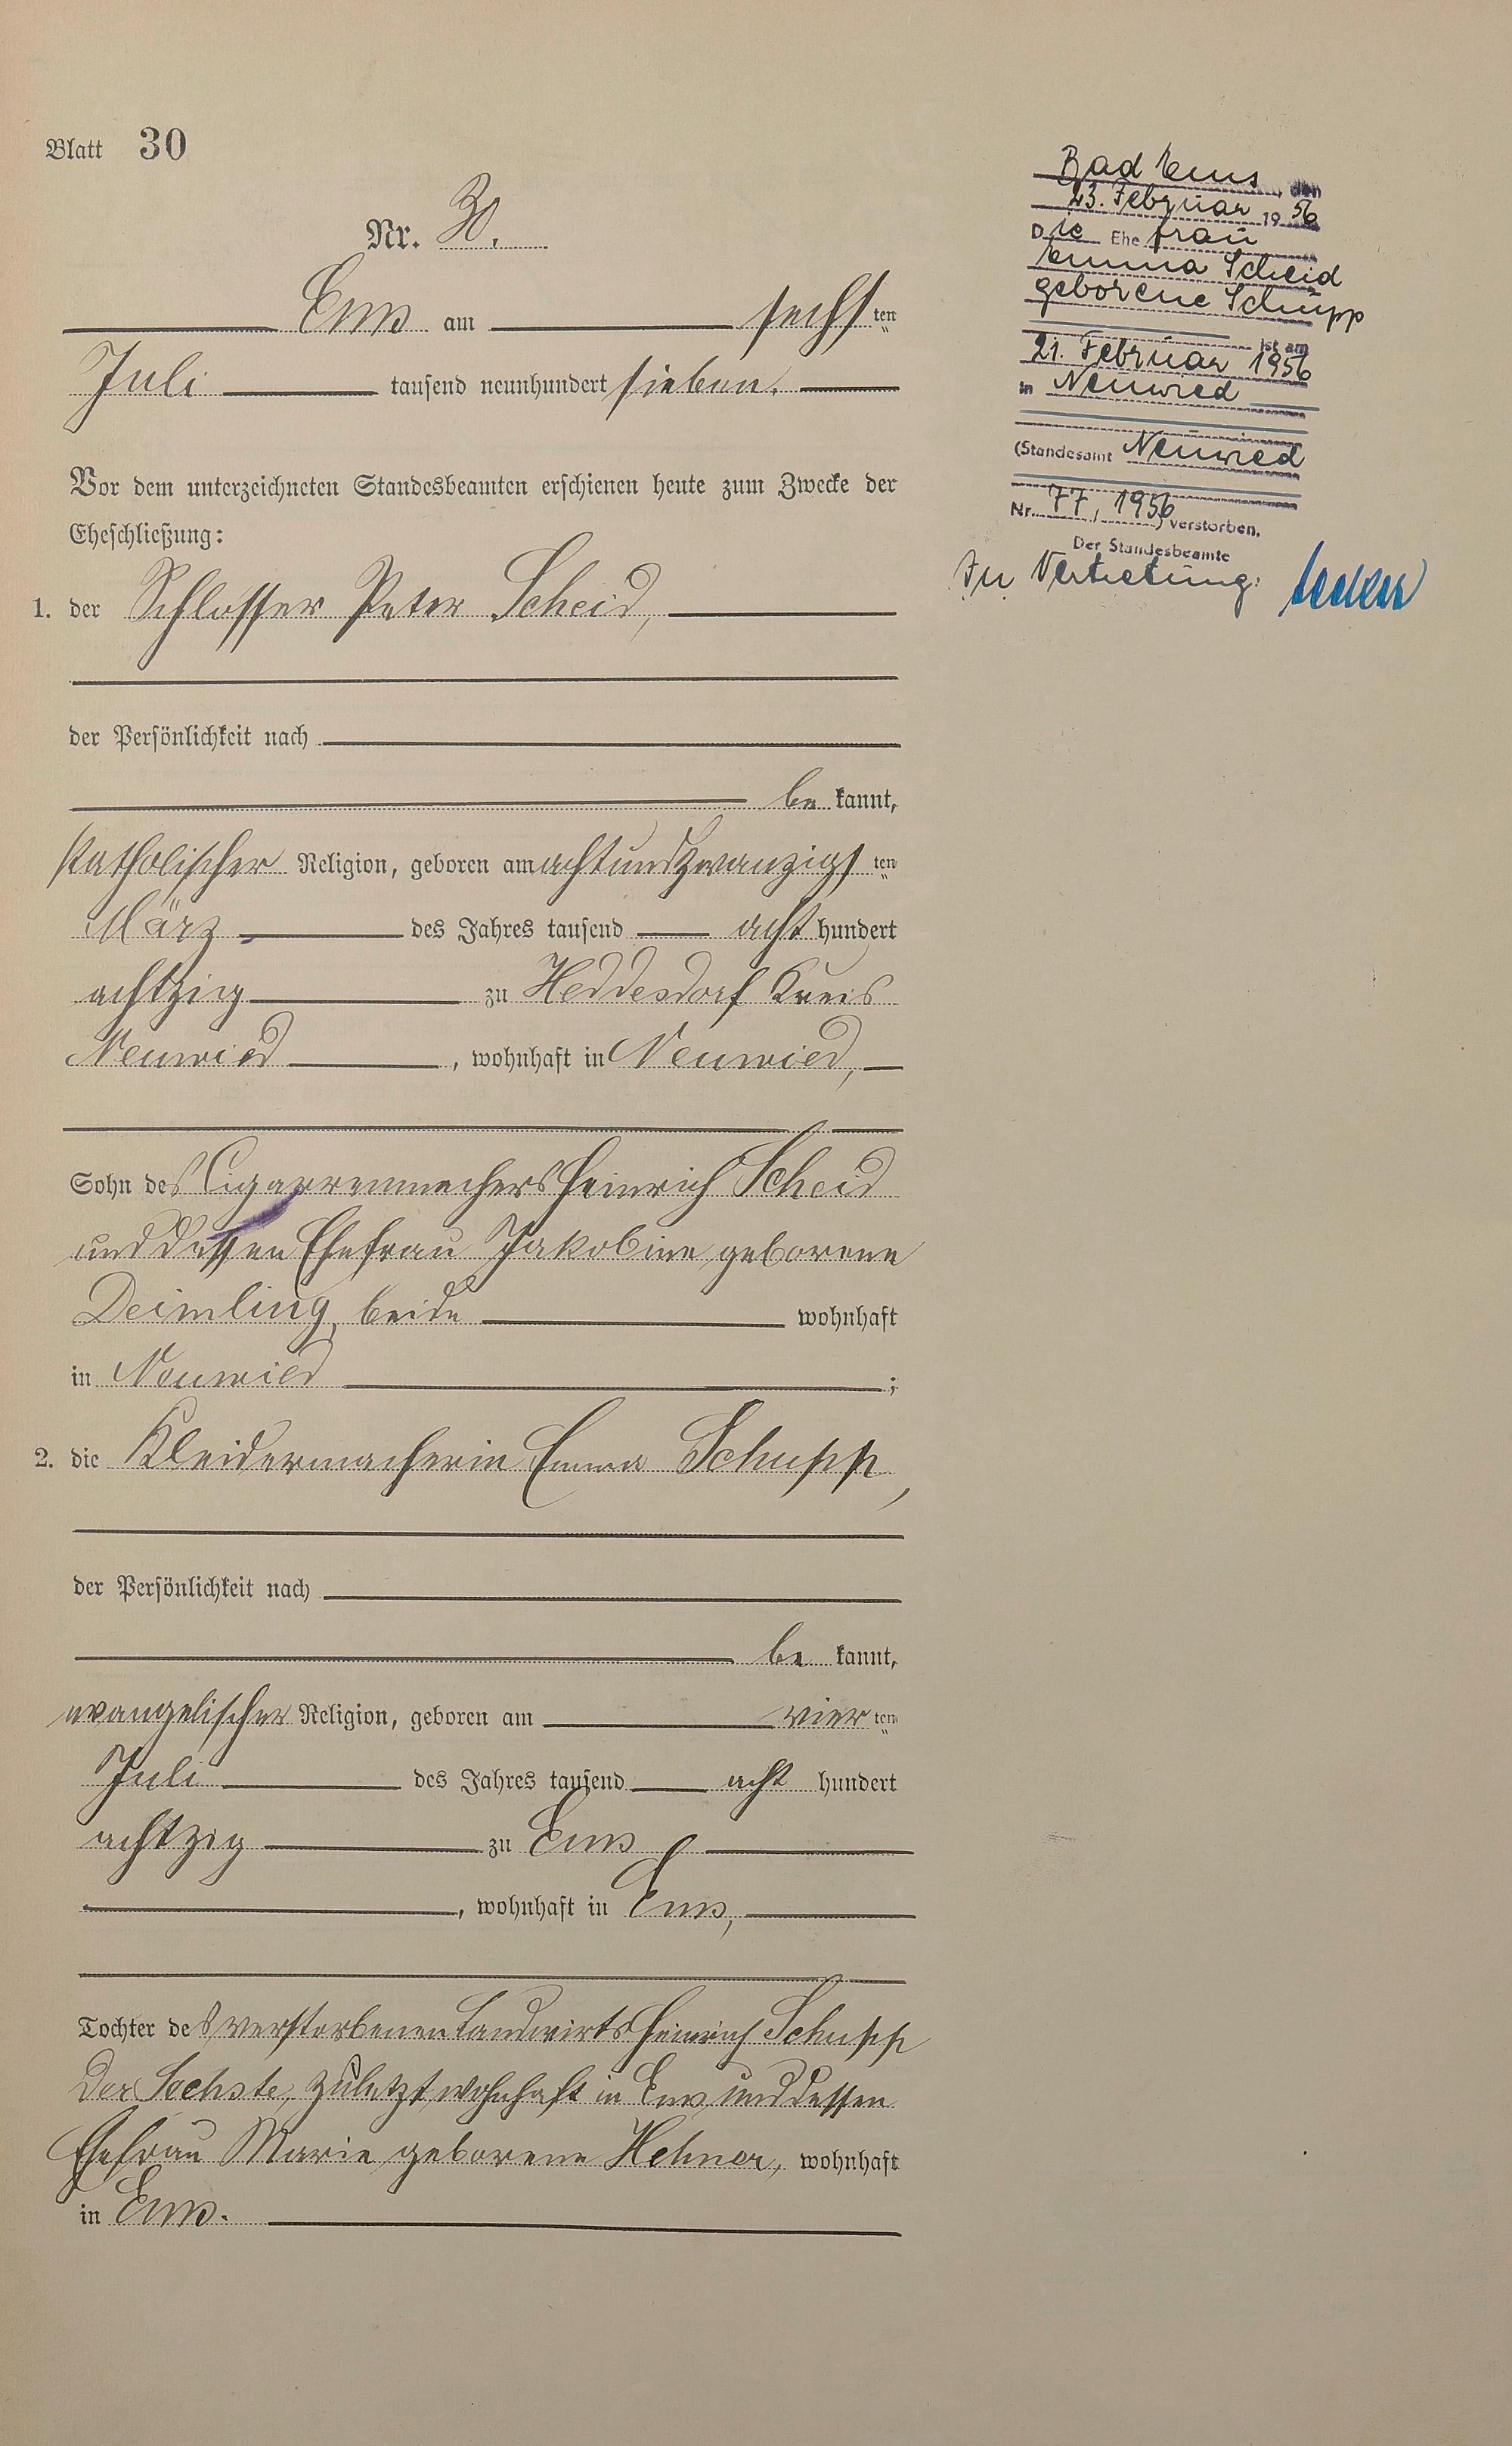 Blatt 30
Nr. 30.
Ems am sechsten
Juli tausend neunhundert sieben.
Vor dem unterzeichneten Standesbeamten erschienen heute zum Zwecke der
Eheschließung:
1. der Schlosser Peter Scheid,
der Persönlichkeit nach
be kannt,
katholischer Religion, geboren am achtundzwanzigsten
März des Jahres tausend acht hundert
achtzig zu Heddesdorf Kreis
Neuwied, wohnhaft in Neuwied,
Sohn des Cigarrenmachers Heinrich Scheid
und dessen Ehefrau Jakobine geborene
Deimling, beide wohnhaft
in Neuwied;
2. die Kleidermacherin Emma Schupp,
der Persönlichkeit nach
be kannt,
evangelischer Religion, geboren am vierten
Juli des Jahres tausend acht hundert
achtzig zu Ems
, wohnhaft in Ems,
Tochter des verstorbenen Landwirts Heinrich Schupp
der Sechste, zuletzt wohnhaft in Ems und dessen
Ehefrau Marie geborene Hehner, wohnhaft
in Ems.
Bad Ems, den
23. Februar 1956
Die Ehefrau
Emma Scheid
geborene Schupp
ist am
21. Februar 1956
in Neuwied
(Standesamt Neuwied
Nr. 77/1956) verstorben.
Der Standesbeamte
In Vertretung: